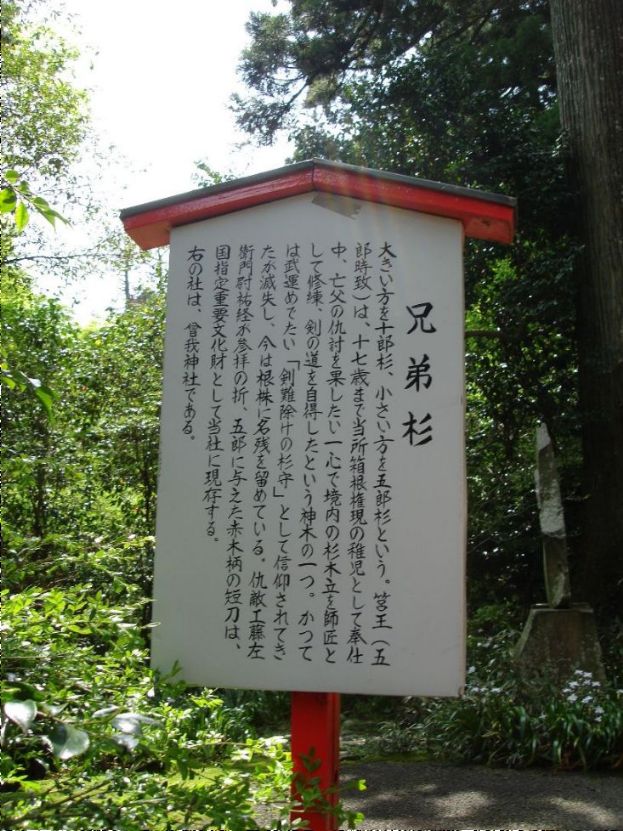 兄弟杉
大きい方を十郎杉、小さい方を五郎杉という。筥王(五
郎時致)は、十七歳まで当所箱根権現の稚児として奉仕
中、亡父の仇討を果したい一心で境内の杉木立を師匠と
して修練、剣の道を自得したという神木の一つ。かつて
は武運めでたい「剣難除けの杉守」として信仰されてき
たが滅失し、今は根株に名残を留めている。仇敵工藤左
衛門尉祐経が参拝の折、五郎に与えた赤木柄の短刀は、
国指定重要文化財として当社に現存する。
右の社は、曾我神社である。